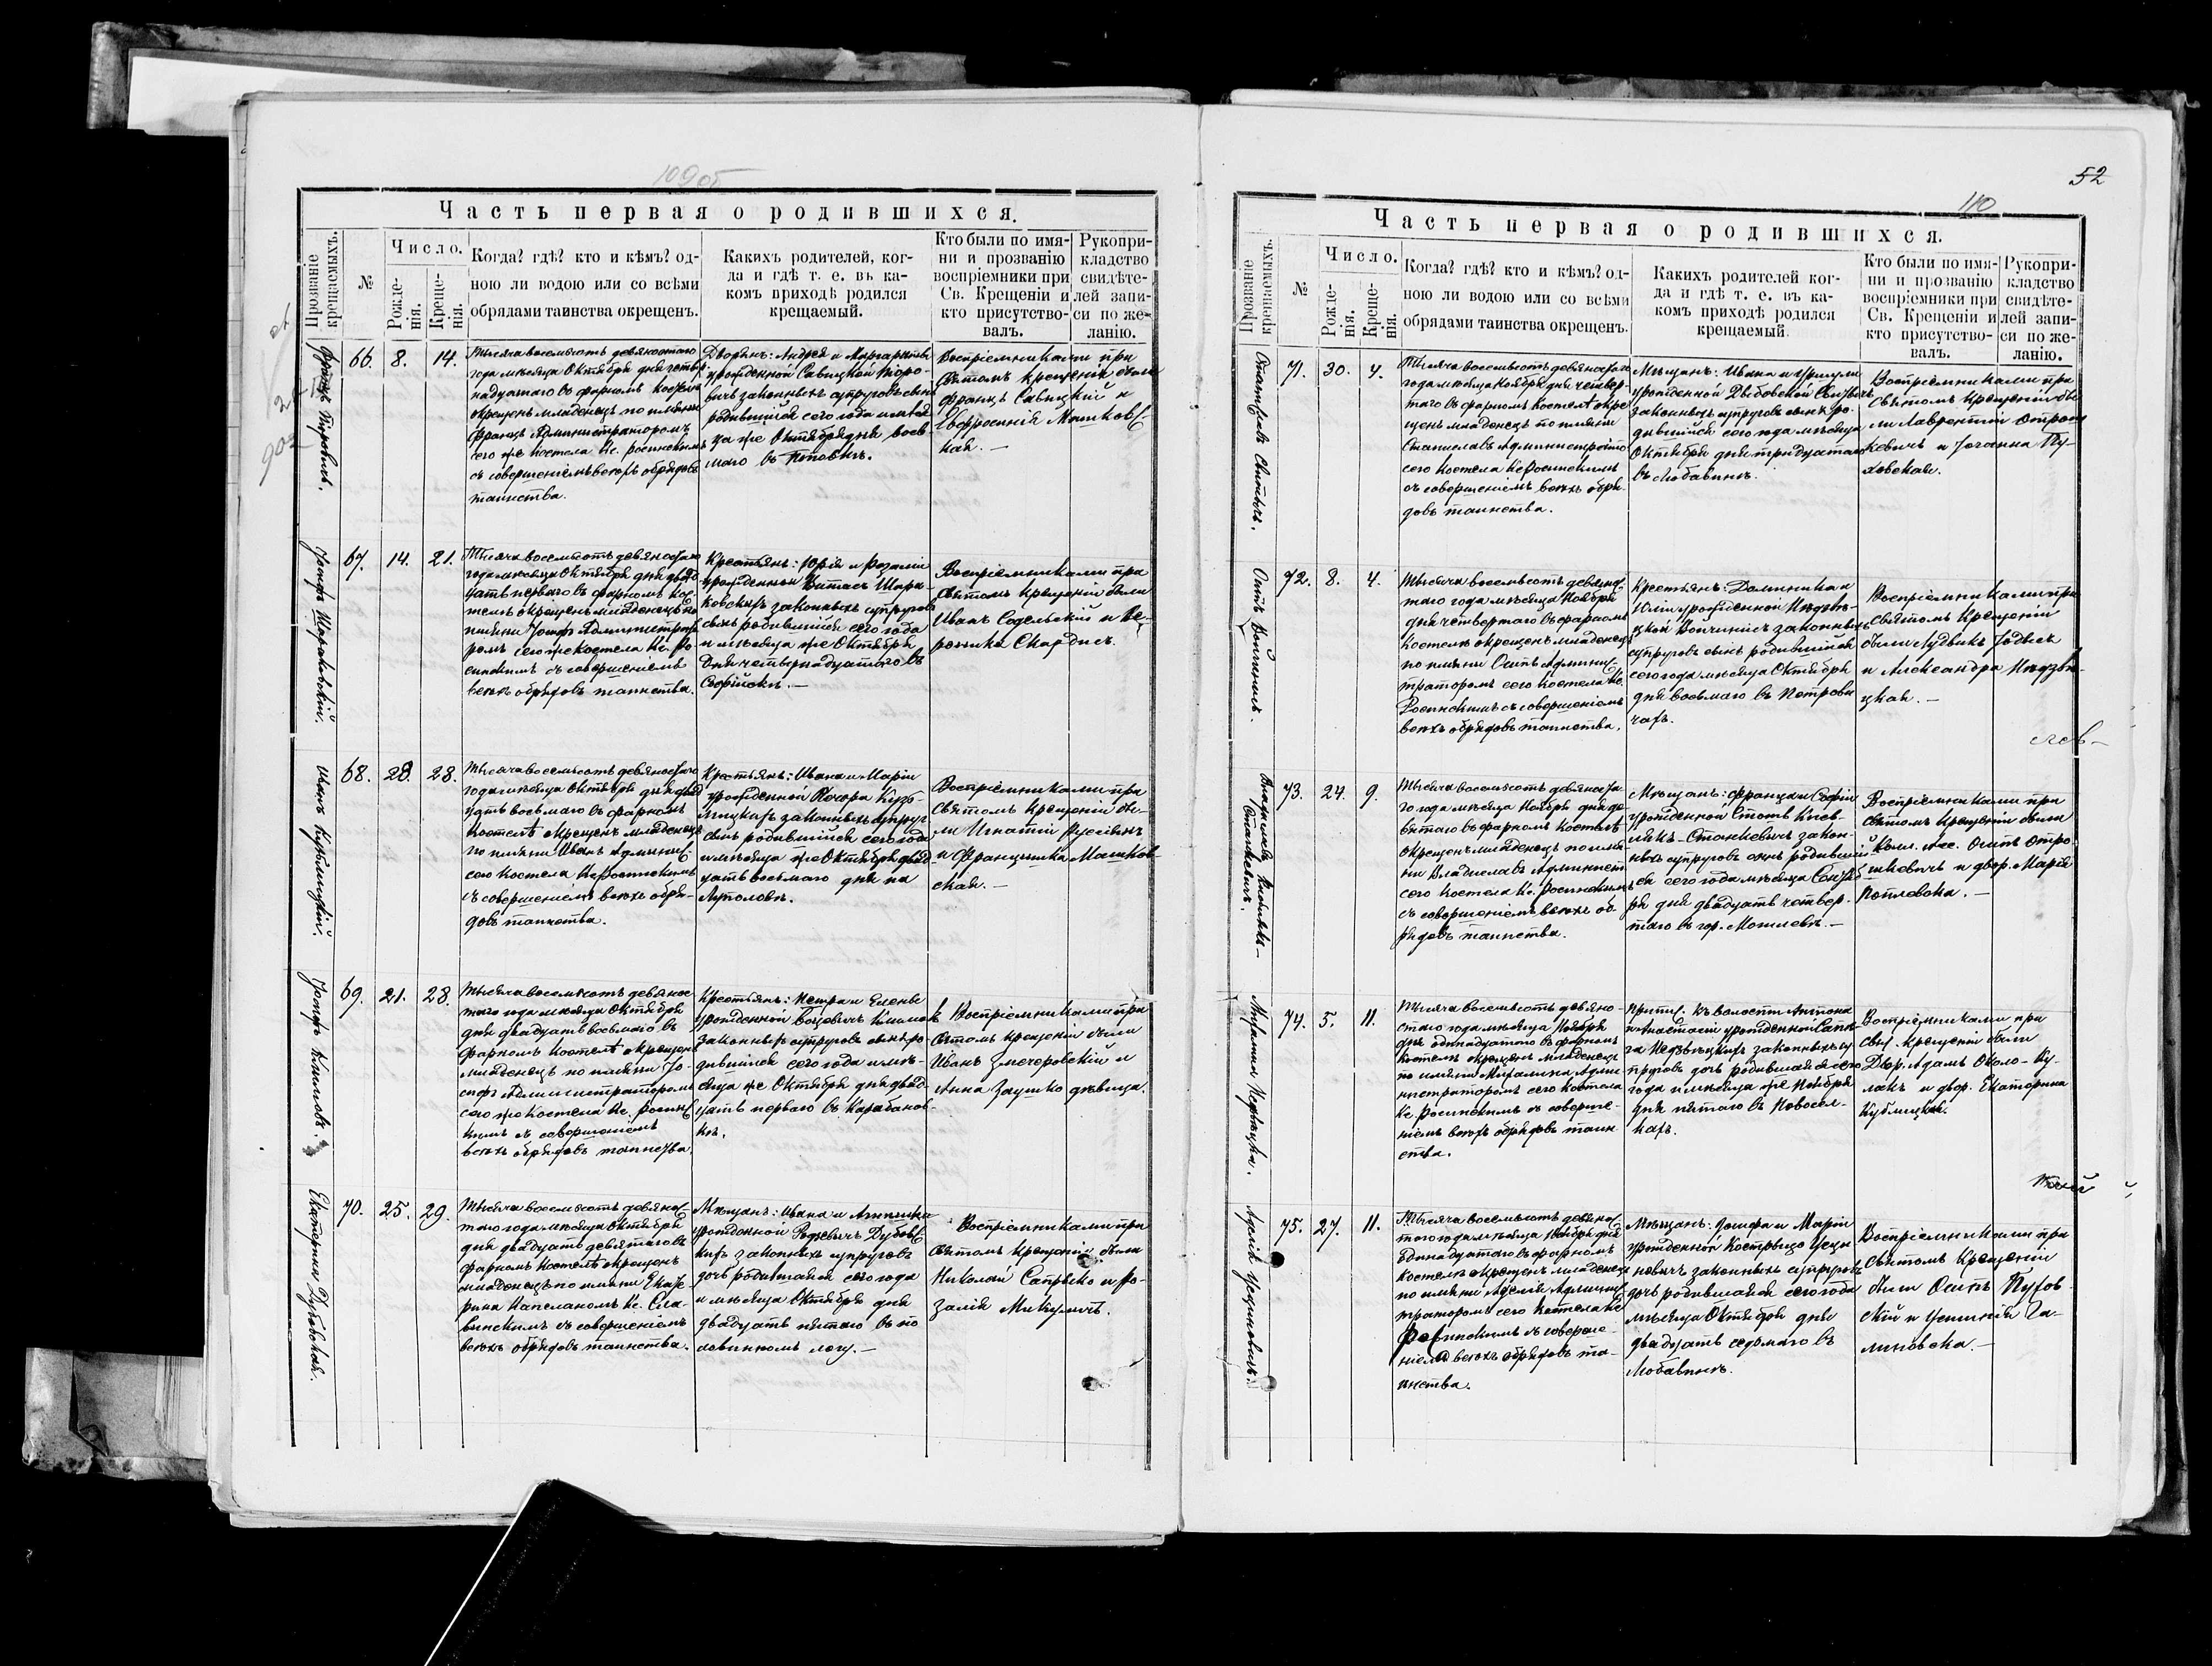 52
110
Часть первая о родившихся.
Прозваніе крещаемыхъ.
№
Число.
Рожде-
нія.
Креще-
нія.
Когда? гдѣ? кто и кѣмъ? од-
ною ли водою или со всѣми
обрядами таинства окрещенъ.
Какихъ родителей, ког-
да и гдѣ т. е. въ ка-
комъ приходѣ родился
крещаемый.
Кто были по имя-
ни и прозванію
воспріемники при
Св. Крещеніи и
кто присутство-
валъ.
Рукопри-
кладство
свидѣте-
лей запи-
си по же-
ланію.
66. 8. 14.
Тысяча восемьсотъ девяностаго
года мѣсяца Октября дня четыр-
надцатаго въ фарномъ костелѣ
окрещенъ младенецъ по имяни
Францъ Администраторомъ
сего же костела Кс. Росинскимъ
съ совершеніемъ всѣхъ обрядовъ
таинства.
Дворянъ: Андрея и Маргариты
урожденной Савицкой Піоро-
вичъ законныхъ супруговъ сынъ
родившійся сего года и мѣся-
ца же Октября дня вось-
маго въ
Воспріемниками при
Святомъ крещеніи были
Францъ Савицкій и
Евфросинія Машков-
ская. —
Іосифъ
67. 14. 21.
Тысяча восемьсотъ девяностаго
года мѣсяца Октября дня двад-
цать перваго въ фарномъ кос-
телѣ окрещенъ младенецъ по
имяни Іосифъ Администрато-
ромъ сего же костела Кс. Ро-
синскимъ съ совершеніемъ
всѣхъ обрядовъ таинства.
Крестьянъ: Юрія и Розаліи
урожденныхъ Витасъ Шара-
ковскихъ законныхъ супруговъ
сынъ родившійся сего года
и мѣсяца же Октября
дня четырнадцатаго въ
Софійскѣ. —
Воспріемниками при
Святомъ крещеніи были
Иванъ Содельскій и Ве-
роника Скардисъ.
Иванъ
68. 28. 28.
Тысяча восемьсотъ девяностаго
года мѣсяца Октября дня двад-
цать восьмаго въ фарномъ
костелѣ окрещенъ младенецъ
по имяни Иванъ Админис
сего костела Кс Росинскимъ
съ совершеніемъ всѣхъ обря-
довъ таинства.
Крестьянъ: Ивана и Маріи
урожденной
законныхъ супруг
сынъ родившійся сего года
и мѣсяца же Октября двад-
цать восьмаго дня на
Луполовѣ.
Воспріемниками при
Святомъ крещеніи бы-
ли Игнатій
и Францишка Машков-
ская. —
Іосифъ Климокъ.
69. 21. 28.
Тысяча восемьсотъ девянос-
таго года мѣсяца Октября
дня двадцать восьмаго въ
фарномъ костелѣ окрещенъ
младенецъ по имяни Іо-
сифъ Администраторомъ
сего же костела Кс. Росинс
кимъ съ совершеніемъ
всѣхъ обрядовъ таинства.
Крестьянъ: Петра и Елены
урожденной Боцевичъ Климокъ
законныхъ супруговъ сынъ ро-
дившійся сего года и мѣ-
сяца же Октября дня двад-
цать перваго въ Карабанов-
кѣ.
Воспріемниками при
Святомъ крещеніи были
Иванъ Змечеровскій и
Анна Заушко дѣвица.
Екатерина Дубовская.
70. 25. 29.
Тысяча восемьсотъ девянос-
таго года мѣсяца Октября
дня двадцать девятаго въ
фарномъ костелѣ окрещенъ
младенецъ по имяни Екате
рина Капеланомъ Кс. Сла-
винскимъ съ совершеніемъ
всѣхъ обрядовъ таинства.
Мѣщанъ: Ивана и
урожденной Радкевичъ Дубовс
кихъ законныхъ супруговъ
дочь родившаяся сего года
и мѣсяца Октября дня
двадцать пятаго въ по
ловинномъ логу. —
Воспріемниками при
Святомъ крещеніи были
Николай Сапѣжко и Ро-
залія Микуличъ.
Часть первая о родившихся.
Прозваніе крещаемыхъ.
№
Число.
Рожде-
нія.
Креще-
нія.
Когда? гдѣ? кто и кѣмъ? од-
ною ли водою или со всѣми
обрядами таинства окрещенъ.
Какихъ родителей ког-
да и гдѣ т. е. въ ка-
комъ приходѣ родился
крещаемый.
Кто были по имя-
ни и прозванію
воспріемники при
Св. Крещеніи и
кто присутство-
валъ.
Рукопри-
кладство
свидѣте-
лей запи-
си по же-
ланію.
Станиславъ
71. 30. 4.
Тысяча восемьсотъ девяностаго
года мѣсяца Ноября дня четвер-
таго въ фарномъ костелѣ окре-
щенъ младенецъ по имяни
Станиславъ Администрато
сего костела Кс Росинскимъ
съ совершеніемъ всѣхъ обря-
довъ таинства.
Мѣщанъ: Ивана и Уршули
урожденной
законныхъ супруговъ сынъ ро-
дившійся сего года мѣсяца
Октября дня тридцатаго
въ Любавинѣ.
Воспріемниками при
Святомъ крещеніи бы-
ли Лаврентій
и Іоганна Пу-
ховская.
Осипъ Войчинисъ.
72. 8. 4.
Тысяча восемьсотъ девянос-
таго года мѣсяца Ноября
дня четвертаго въ фарномъ
костелѣ окрещенъ младенецъ
по имяни Осипъ Админис-
траторомъ сего костела Кс.
Росинскимъ съ совершеніемъ
всѣхъ обрядовъ таинства.
Крестьянъ: Доминика и
Юліи урожденной Нѣдзвѣ-
цкой Войчинисъ законныхъ
супруговъ сынъ родившійся
сего года мѣсяца Октября
дня восьмаго въ Петрови
чахъ.
Воспріемниками при
Святомъ крещеніи
были Лудвикъ Іодвисъ
и Александра Нѣдзвѣ-
цкая. —
Владиславъ Кисѣлякъ-
Станкевичъ.
73. 24. 9.
Тысяча восемьсотъ девяноста-
го года мѣсяца Ноября дня де-
вятаго въ фарномъ костелѣ
окрещенъ младенецъ по имя-
ни Владиславъ Админист
сего костела Кс. Росинскимъ
съ совершеніемъ всѣхъ об-
рядовъ таинства.
Мѣщанъ: Францa и Софіи
урожденной
Станкевичъ закон-
ныхъ супруговъ сынъ родивші-
ся сего года мѣсяца Сентяб-
ря дня двадцать четвер-
таго въ гор. Могилевѣ. —
Воспріемниками при
Святомъ крещеніи были
Колл. Асс. Осипъ Отро-
шкевичъ и двор. Марія
Поплевска. —
74. 5. 11.
Тысяча восемьсотъ девяно-
стаго года мѣсяца Ноября
дня одиннадцатаго въ фарномъ
костелѣ окрещенъ младенецъ
по имяни Михалина Адми
нистраторомъ сего костела
Кс Росинскимъ съ соверше-
ніемъ всѣхъ обрядовъ таин
ства.
Припис. къ волости Антона
и Анастасіи урожденной Сапѣ-
га Недзвѣцкихъ законныхъ су
пруговъ дочь родившаяся сего
года и мѣсяца же Ноября
дня пятаго въ Новосел-
кахъ.
Воспріемниками при
свят. крещеніи были
Двор. Адамъ Около-Ку-
лакъ и двор. Екатерина
Кублицкая.
75. 27. 11.
Тысяча восемьсотъ девянос-
таго года мѣсяца Ноября дня
одиннадцатаго въ фарномъ
костелѣ окрещенъ младенецъ
по имяни Аделія Админис
траторомъ сего костела Кс
Росинскимъ съ соверше-
ніемъ всѣхъ обрядовъ та-
инства.
Мѣщанъ: Іосифа и Маріи
урожденной
законныхъ супруговъ
дочь родившаяся сего года
мѣсяца Октября дня
двадцать седьмаго въ
Любавинѣ.
Воспріемниками при
Святомъ Крещеніи
были Осипъ Пухов
скій и Га-
линовска. —